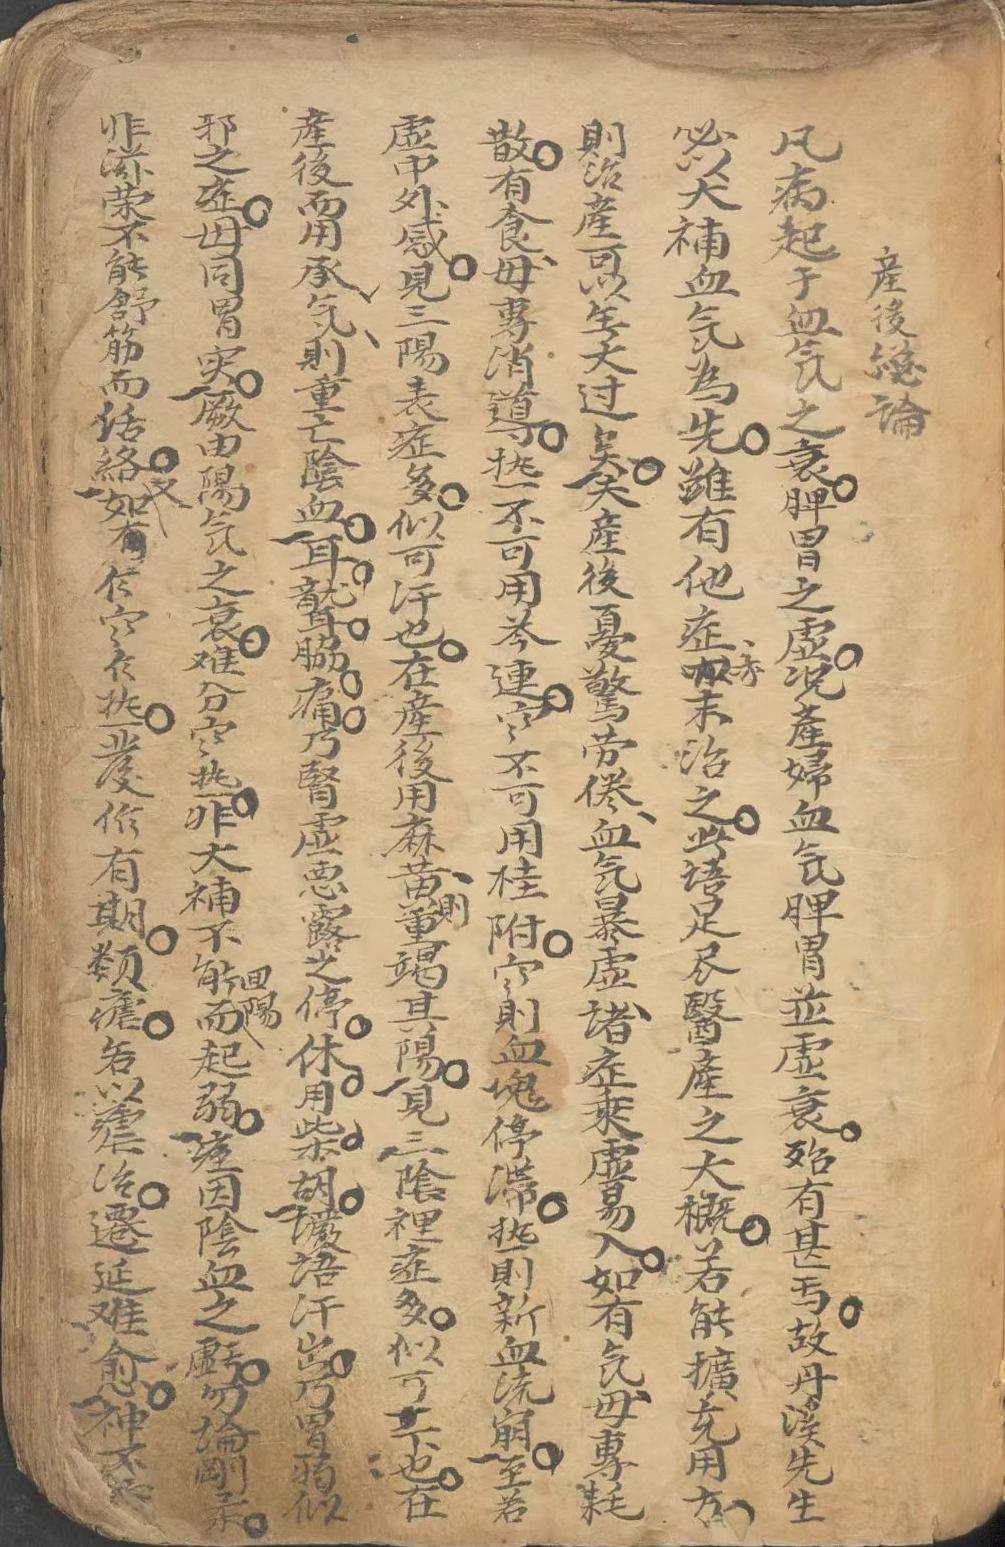 產後總論
凡病起于血气之衰脾胃之虛况產婦血气脾胃並虛衰殆有甚焉故丹溪先生
必以大補血气為先雖有他症以末治之此語足尽醫產之大概若能擴充用方
則治產可以无大过矣夫產後憂驚劳倦血气暴虛諸症乘虛易入如有气毋專耗
散有食毋專消導热不可用芩連寒不可用桂附寒則血塊停滯热則新血流崩至若
虛中外感見三陽表症多似可汗也在產後用麻黄則重竭其陽見三陰裡症多似可下也在
產後而用承气則重亡陰血耳聾脇痛乃腎虛悪露之停休用柴胡讝語汗出乃胃弱似
邪之症毋同胃实厥由陽气之衰难分寒热非大補不能回陽而起弱痓因陰血之虧勿論剛柔
非滋荣不能舒筋而活絡又如有乍寒乍热發作有期類瘧若以瘧治遷延难愈神不